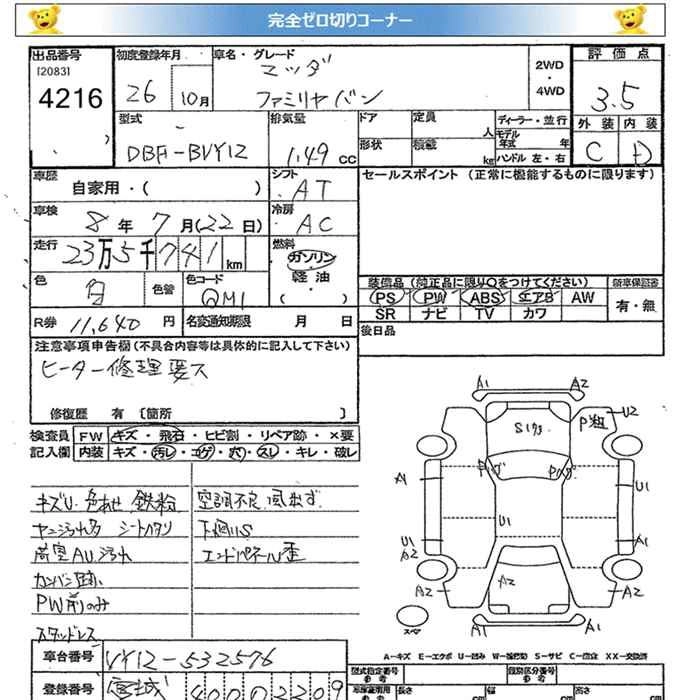 完全ゼロ切りコーナー
出品番号 初度登録年月 車名・グレード 2WD・4WD 評価点
[2083] 4216 26 10月 マツダ ファミリヤバン 3.5
外装 内装
C D
型式 排気量 ドア 定員 人 ディーラー・並行
DBF-BVY12 1.49 CC 形状 積載 kg モデル年式 年
ハンドル 左・右
車歴 シフト セールスポイント (正常に機能するものに限ります)
自家用・( ) AT
車検 冷房
8年7月(22日) AC
走行 燃料
23万5千741km ガソリン・軽油・( )
色 色替 色コード 装備品 (純正品に限り○をつけてください) 新車保証書
白 QM1 PS PW ABS エアB AW 有・無
SR ナビ TV カワ
R券 11,640円 名変通知期限 月 日 後日品
注意事項申告欄(不具合内容等は具体的に記入して下さい)
ヒーター修理要ス
修復歴 有 〔箇所 〕
検査員 FW キズ・飛石・ヒビ割・リペア跡・×要
記入欄 内装 キズ・汚レ・コゲ・穴・スレ・キレ・破レ
キズU 色あせ 鉄粉 空調不良 風出ず
ヤニ汚れ多 シートヘタリ 下廻りS
荷室AU汚れ エンドパネル歪
カンバン跡
PW前のみ
スタッドレス
A1 A2
S1 P U2
A1 U1
U1
U1 A2 A1
A2 A2 A2
スペア
A1 A2
A-キズ E-エクボ U-凹み W-波 S-サビ C-腐食 XX-交換済
車台番号 VY12-532576 型式指定番号 類別区分番号
登録番号 宮城 400 0 2209 長さ cm 幅 cm 高さ cm